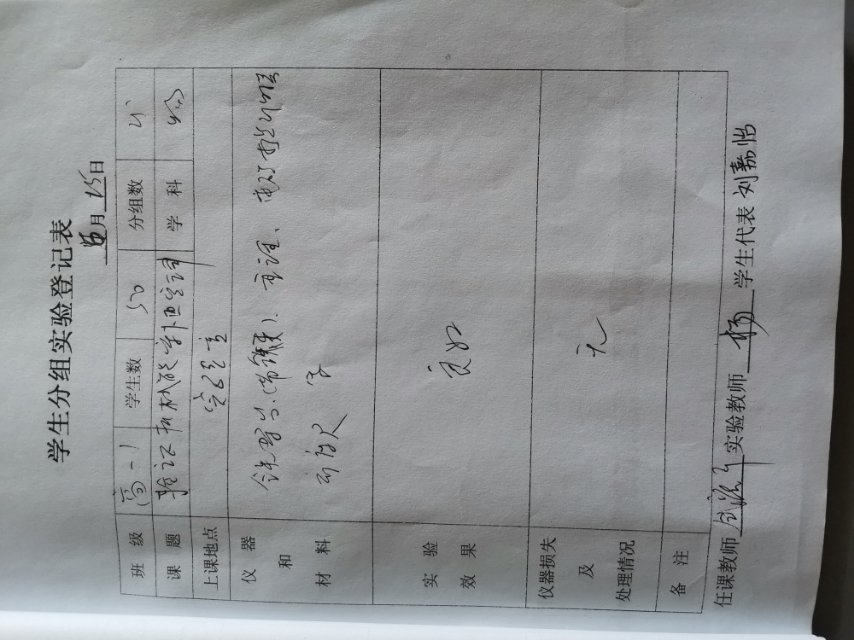 学生分组实验登记表
月15日
班级 高一1 学生数 50 分组数 25
课题 验证机械能守恒定律 学科 物
上课地点 实验室
仪器和材料 铁架台(带铁夹)、重锤、打点计时器
刻度尺 等
实验效果 良好
仪器损失及处理情况 无
备注
任课教师 实验教师 杨 学生代表 刘嘉怡